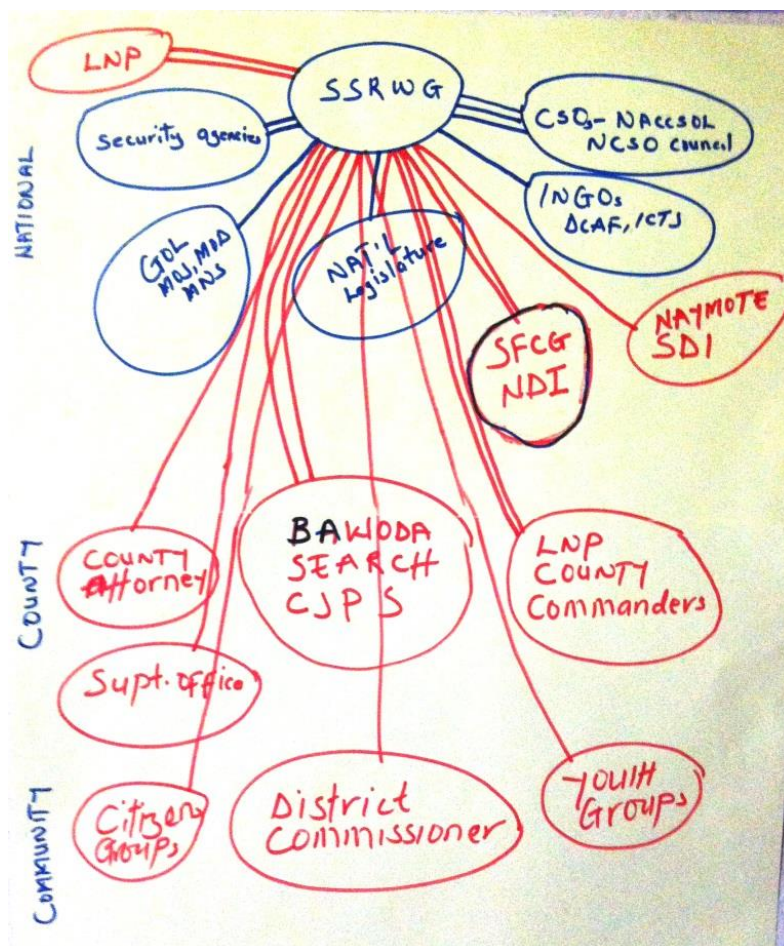 LNP
SSRWG
Security agencies
CSOs- NACCSOL
NCSO Council
INGOs
DCAF, ICTJ
NATIONAL
GOL
MOJ, MOD
MNS
NAT'L
Legislature
SFCG
NDI
NAYMOTE
SDI
COUNTY
COUNTY
Attorney
BAWODA
SEARCH
CJPS
LNP
COUNTY
Commanders
Supt. Office
COMMUNITY
Citizens
Groups
District
Commissioner
YOUTH
Groups